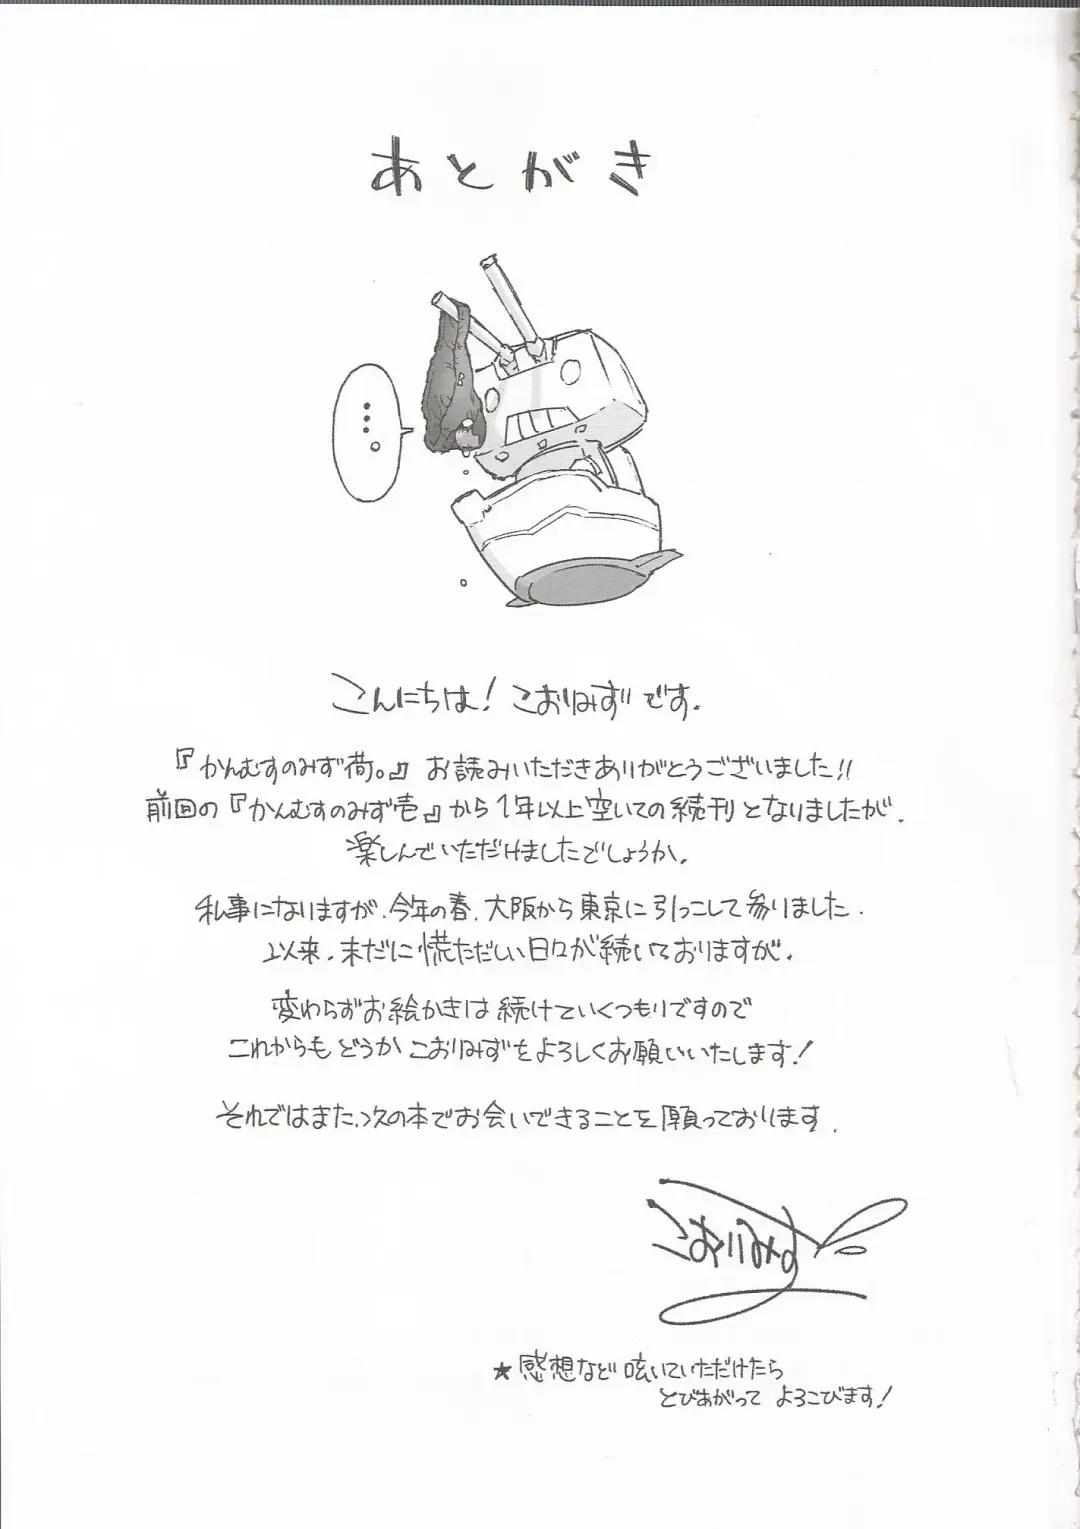 あとがき
・・・。
こんにちは！こおりみずです．
『かんむすのみず荷。』お読みいただきありがとうございました!!
前回の『かんむすのみず壱』から1年以上空いての続刊となりましたが．
楽しんでいただけましたでしょうか．
私事になりますが．今年の春．大阪から東京に引っこして参りました．
以来．未だに慌ただしい日々が続いておりますが．
変わらずお絵かきは続けていくつもりですので
これからもどうかこおりみずをよろしくお願いいたします！
それではまた．次の本でお会いできることを願っております．
こおりみず
★感想など呟いていただけたら
とびあがってよろこびます！